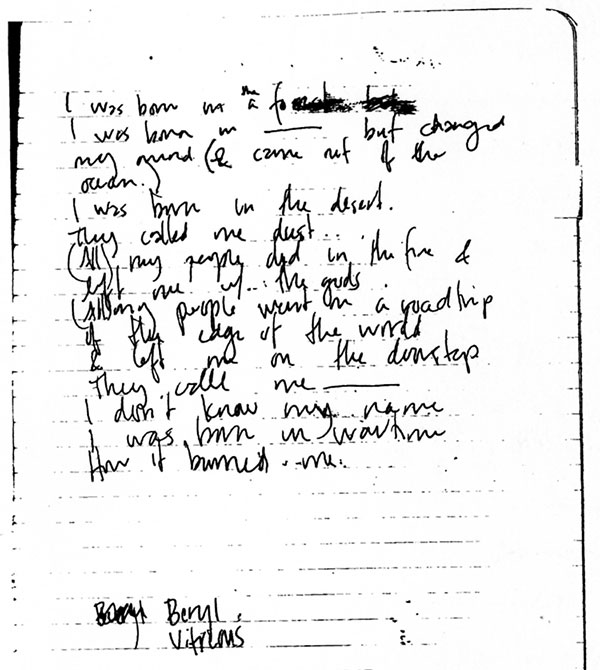 I was born in the a
I was born in ____ but changed
my mind (& came out of the
ocean.)
I was born in the desert.
They called me dust...
(All) my people died in the fire &
left me w. the gods.
(All) my people went on a roadtrip
of the edge of the world
& left me on the doorstep
They calle me ____
I don't know my name
I was born in wartime
How it burned me.
Beryl
Vitreous